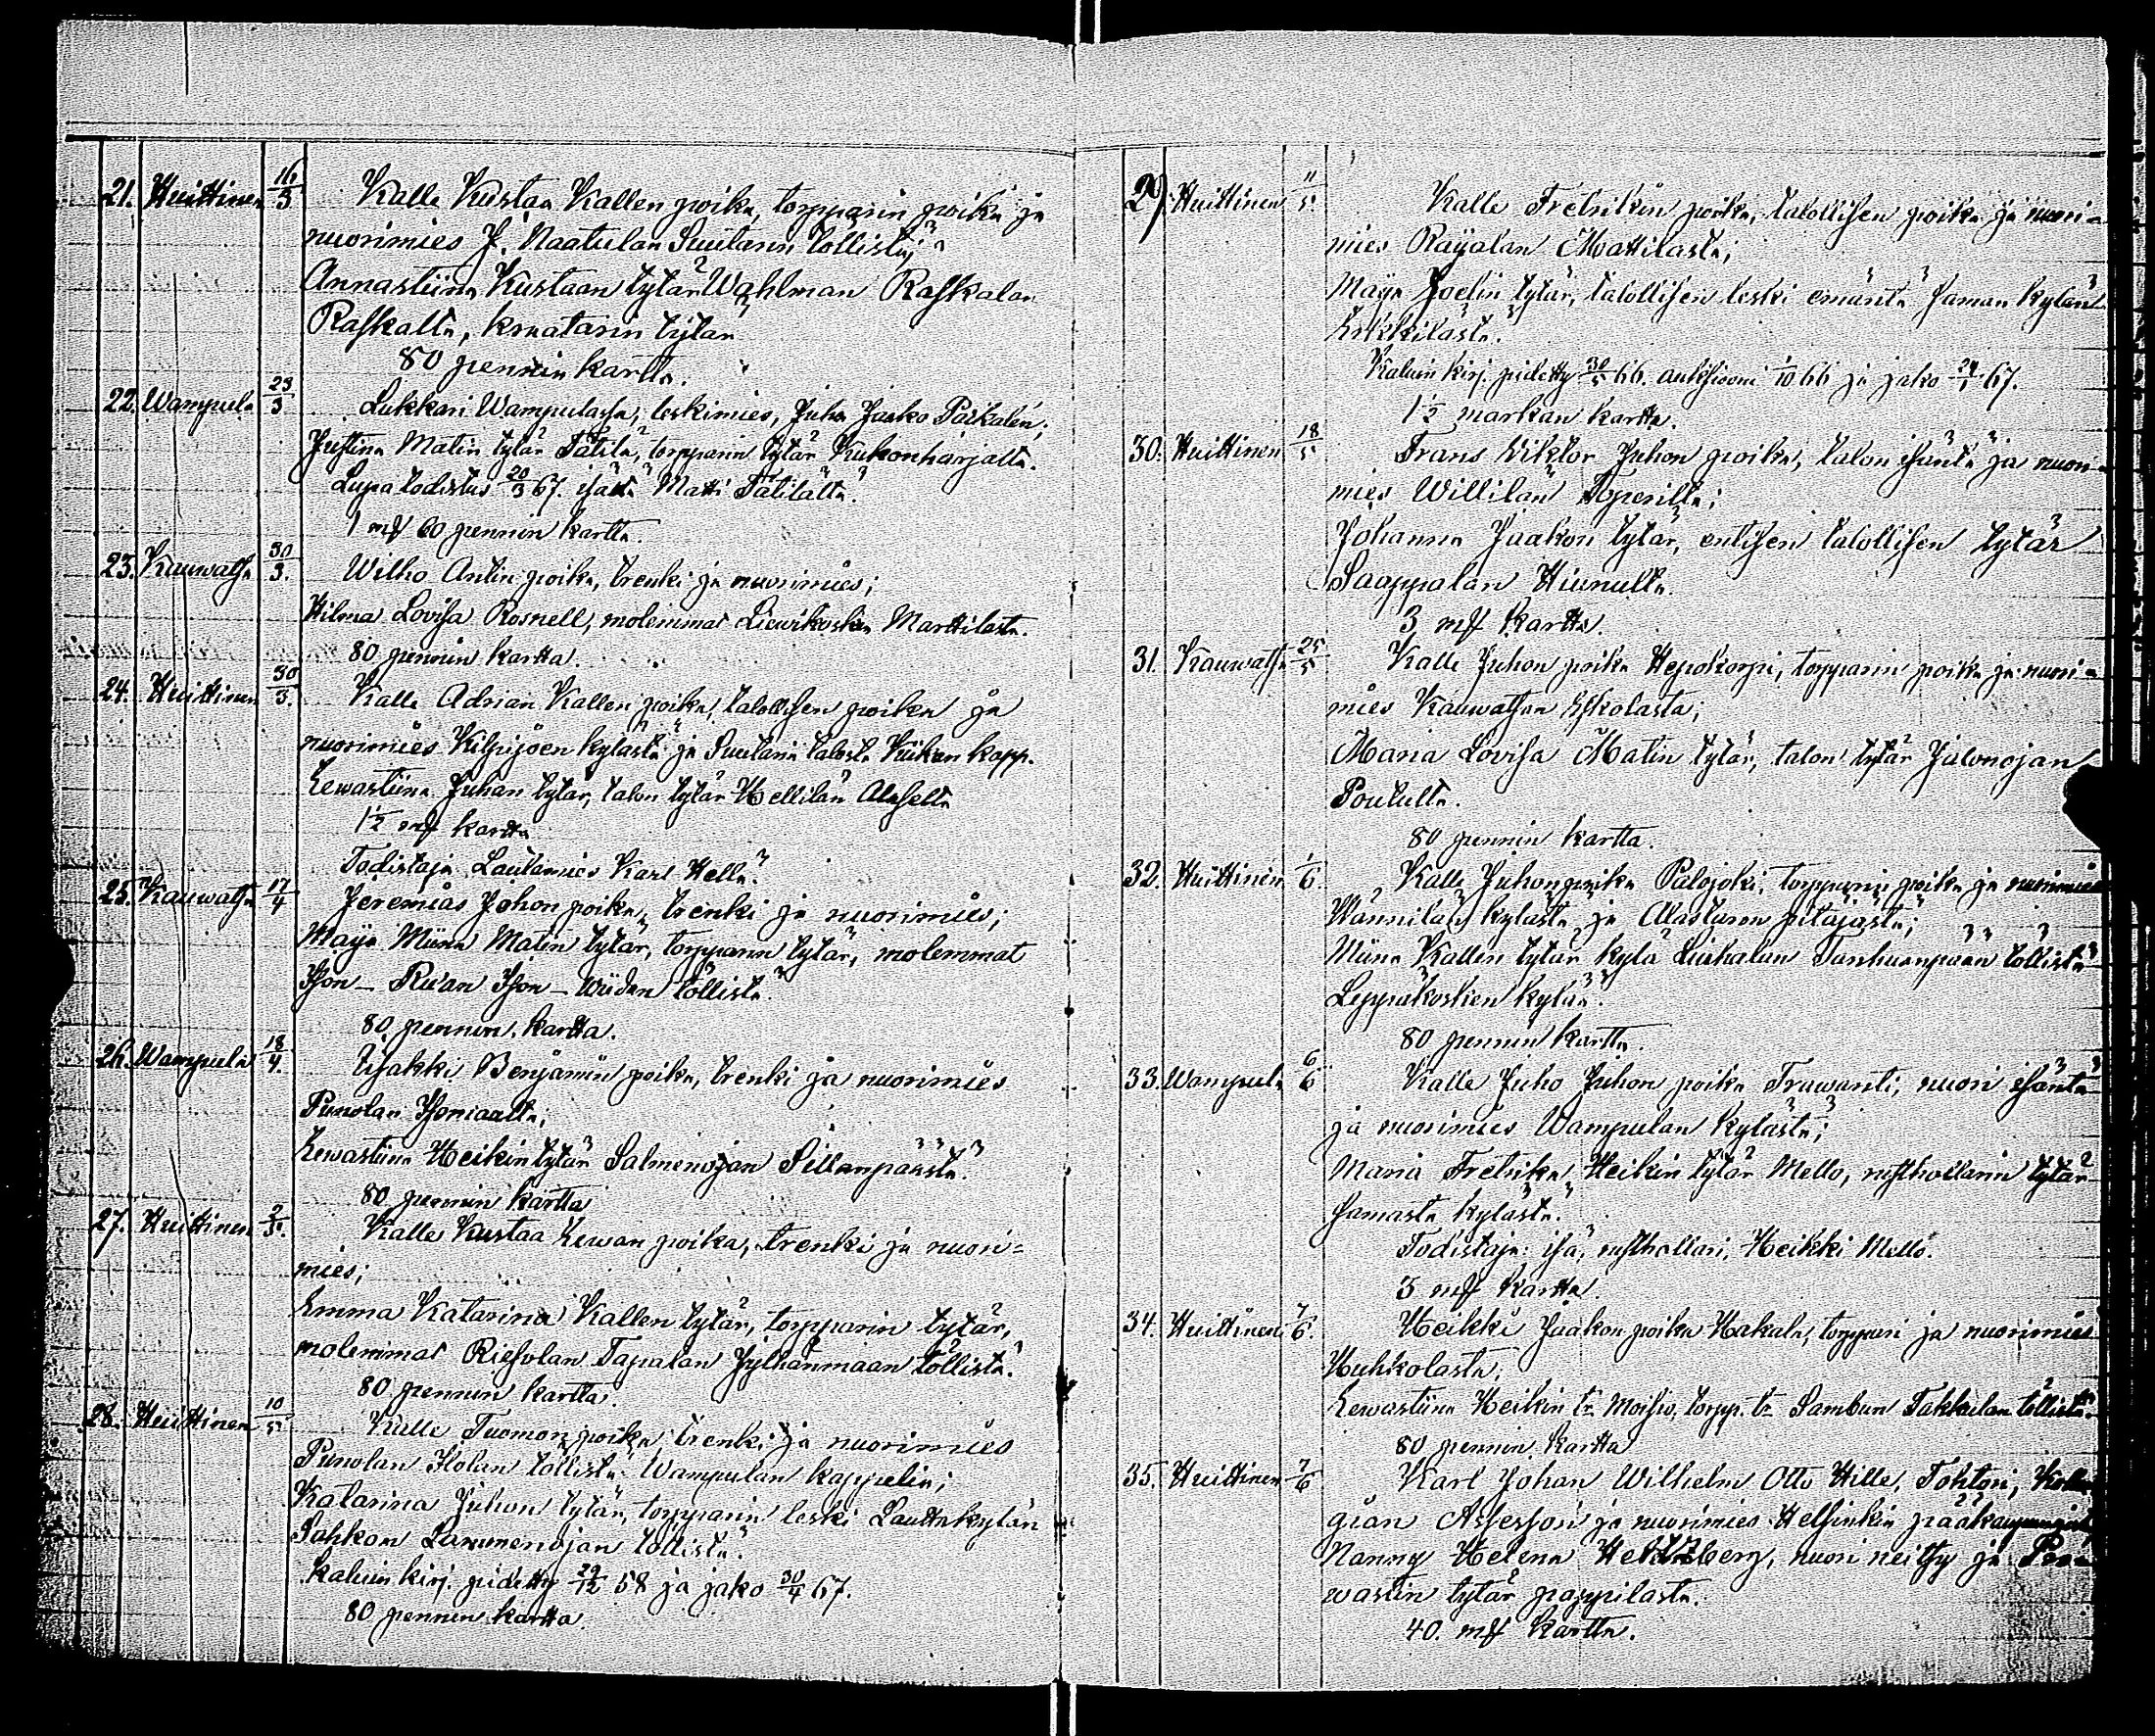 21. Huittinen 16/3 Kalle Kustaa Kallen poika, torpparin poika ja
nuorimies J. Naatulan Suutarin töllistä;
Annastiina Kustaan tytär Wahlman Raskalan
Raskalta, kraatarin tytär
80 pennin kartta.
22. Wampula 23/3 Lukkari Wampulassa, leskimies, Juho Jaako
Justina Matin tytär Tätilä, torpparin tytär Kukonharjalta.
Lupa todistus 20/3 67. isältä Matti Tätilältä.
1 mk 60 pennin kartta.
23. Kauwatsa 30/3. Wilho Antin poika, trenki ja nuorimies;
Hilma Lovisa Rosnell, molemmat Liewikosken Marttilasta.
80 pennin kartta.
24. Huittinen 30/3. Kalle Adrian Kallen poika, talollisen poika ja
nuorimies Kilpijoen kylästä ja Suutarin talosta Kiikan kapp.
Eewastiina Juhan tytär, talon tytär Hellilän Alaselta
1 1/2 mk kartta
Todistaja Lautamies Karl Hellä.
25. Kauwatsa 17/4 Jeremias Johon poika, trenki ja nuorimies;
Maija Miina Matin tytär, torpparin tytär, molemmat
Ison-Ruan Ison-Wiidan töllistä.
80 pennin kartta.
26. Wampula 18/4. Iisakki Benjamin poika, trenki ja nuorimies
Punolan
Eewastiina Heikin tytär Salmenojan Sillanpäästä.
80 pennin kartta
27. Huittinen 2/5. Kalle Kustaa Eewan poika, trenki ja nuori=
mies;
Emma Katarina Kallen tytär, torpparin tytär,
molemmat Riesolan Tapalan Jylhänmaan töllistä.
80 pennin kartta.
28. Huittinen 10/5 Kalle Tuomon poika, trenki ja nuorimies
Punolan Iholan töllistä Wampulan kappelia;
Katarina Juhon tytär, torpparin leski Lauttakylän
Sahkon Lammenojan töllistä.
Kaluin kirj. pidetty 29/12 58 ja jako 30/4 67.
80 pennin kartta.
29. Huittinen 11/5. Kalle Fretrikin poika, talollisen poika ja nuori=
mies Raijalan Mattilasta;
Maija Joelin tytär, talollisen leski emäntä saman kylän
Erkkilästä.
Kaluin kirj. pidetty 30/5 66. auksiooni 1/10 66 ja jako 24/1 67.
1 1/2 markan kartta.
30. Huittinen 18/5 Frans Viktor Juhon poika, talon isäntä ja nuori=
mies Willilän
Johanna Jaakon tytär, entisen talollisen tytär
Saappalan Hiunulta.
3 mk kartta.
31. Kauwatsa 25/5 Kalle Juhon poika Hepokorpi, torpparin poika ja nuori=
mies Kauwatsan Eskolasta;
Maria Lovisa Matin tytär, talon tytär Jalonojan
Poutulta.
80 pennin kartta.
32. Huittinen 1/6. Kalle Juhon poika Palojoki, torpparin poika ja nuorimies
Männilän kylästä ja Alastaron pitäjästä;
Miina Kallen tytär kylä Liuhalan Tanhuanpään töllistä
Leppäkosken kylän.
80 pennin kartta.
33. Wampula 6/6 Kalle Juho Juhon poika Trawanti, nuori isäntä
ja nuorimies Wampulan kylästä;
Maria Fretrika Heikin tytär Mello, rusthollarin tytär
samasta kylästä.
Todistaja: isä, rusthollari, Heikki Mello.
3 mk kartta.
34. Huittinen 7/6. Heikki Jaakon poika Hakala, torppari ja nuorimies
Huhkolasta;
Eewastiina Heikin tr Moisio, torpp. tr Sambun Takkulan töllistä.
80 pennin kartta
35. Huittinen 7/6 Karl Johan Wilhelm Otto Hille, Tohtori, Kolle
gian Assessori ja nuorimies Helsinkin pääkaupungista
Nanny Helena nuori neitsy ja Proo
wastin tytär pappilasta.
40. mk kartta.